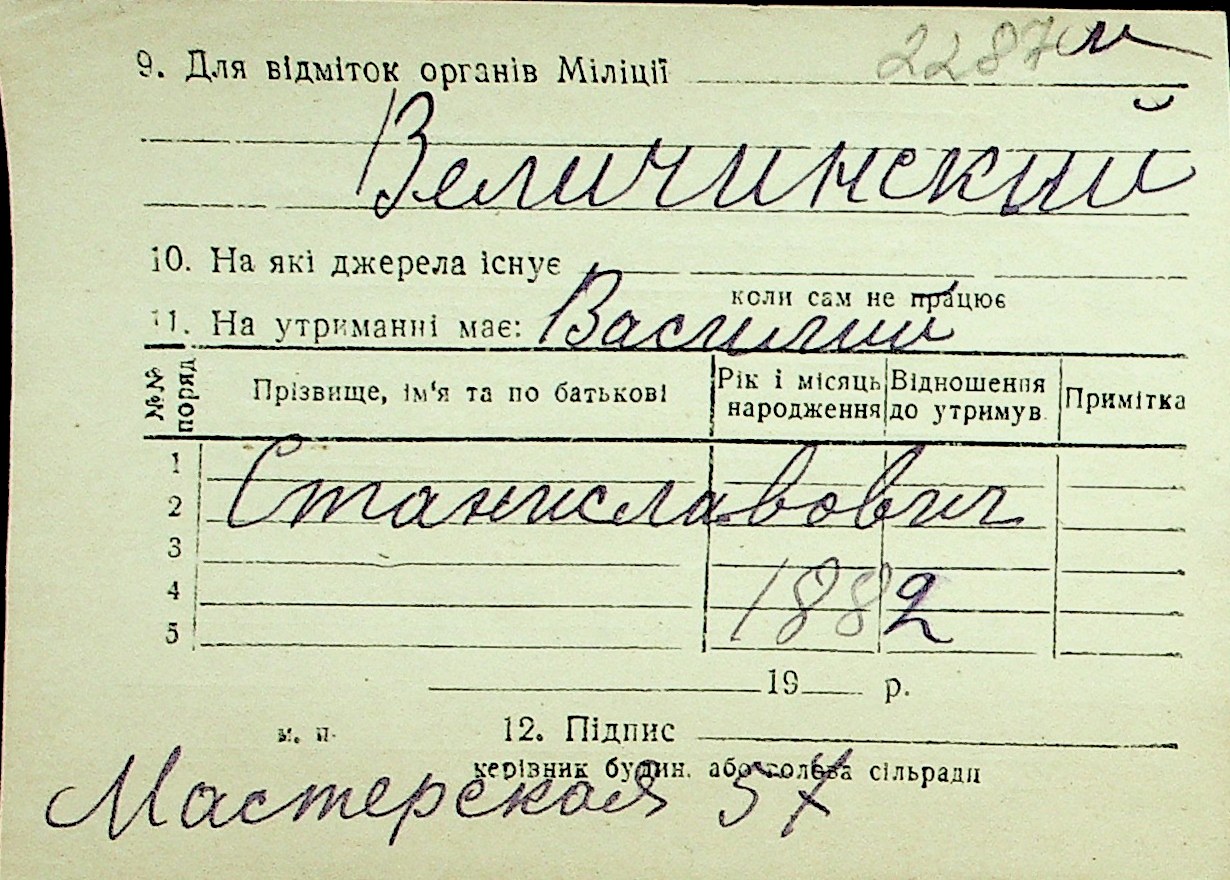 2287м
9. Для відміток органів Міліції
Величинский
10. На які джерела існує
коли сам не працює
11. На утриманні має: Василий
№№ поряд Прізвище, ім'я та по батькові Рік і місяць народження Відношення до утримув. Примітка
1
Станиславович
2
3
4
1882
5
19 р.
м. п. 12. Підпис
керівник будин. або голова сільради
Мастерская 57